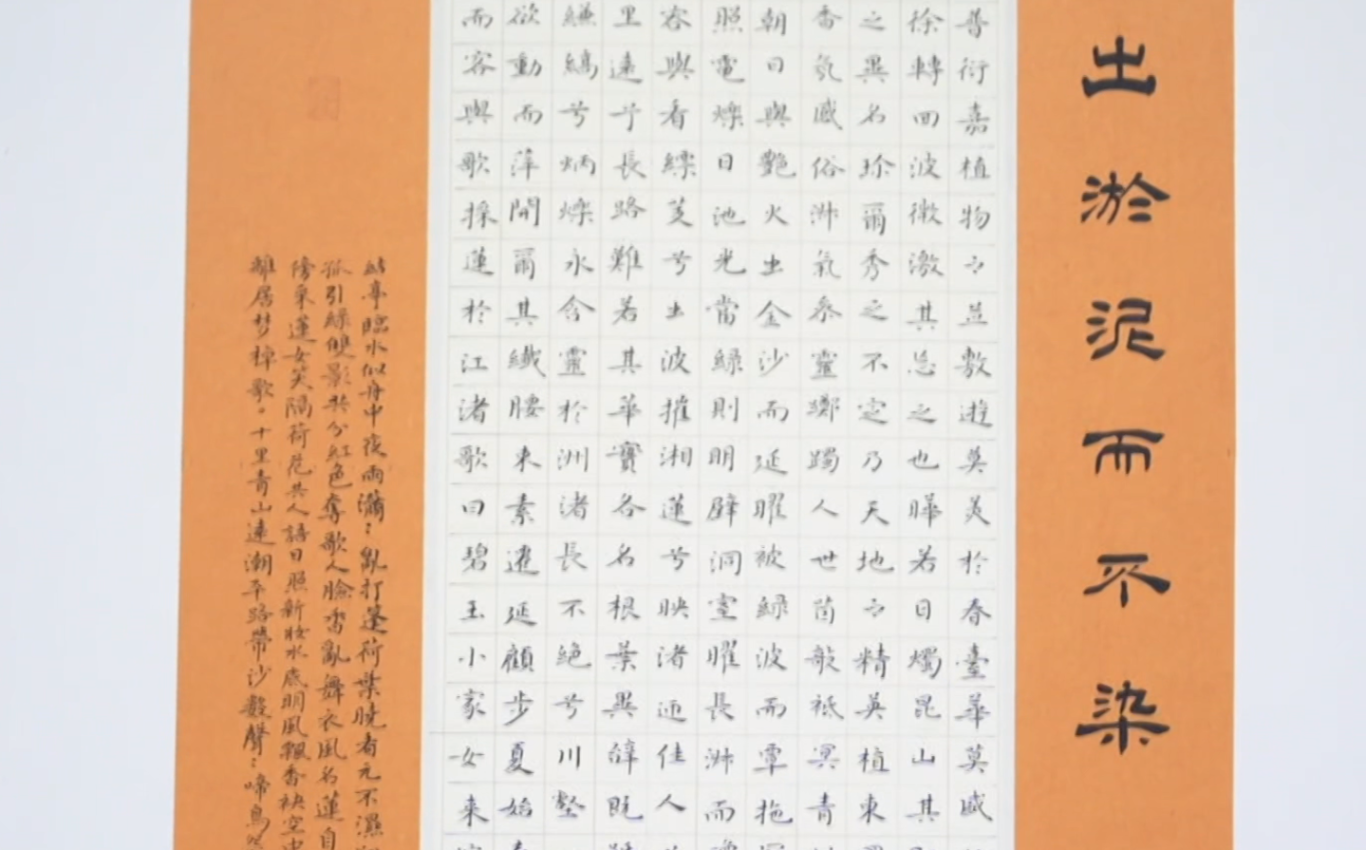 出淤泥而不染
普衍嘉植物之並敷遊莫美於春臺華莫盛
徐轉回波微激其忽之也曄若日燭昆山其
之異名珍爾秀之不定乃天地之精英植東
香氛感俗淋氣參靈躑躅人世茵歌祗冥青
朝日與艷火出金沙而延曜被綠波而覃拖
照電爍日池光當綠則明壁洞室曜長洲而
容與看縹芰兮出波摧湘蓮兮映渚迎佳人
里遠乎長路難若其華實各名根葉異辭既
縑縞兮炳爍永含靈於洲渚長不絕兮川壑
欲動而萍開爾其纖腰束素遷延顧步夏始
而容與歌採蓮於江渚歌曰碧玉小家女來
結亭臨水似舟中夜雨瀟：亂打篷荷葉曉看元不濕
孤引綠雙影共分紅色奪歌人臉香亂舞衣風名蓮自
傍采蓮女笑隔荷花共人語日照新妝水底明風飄香袂空中
離居梦棹歌。十里青山遠潮平路帶沙數聲：啼鳥